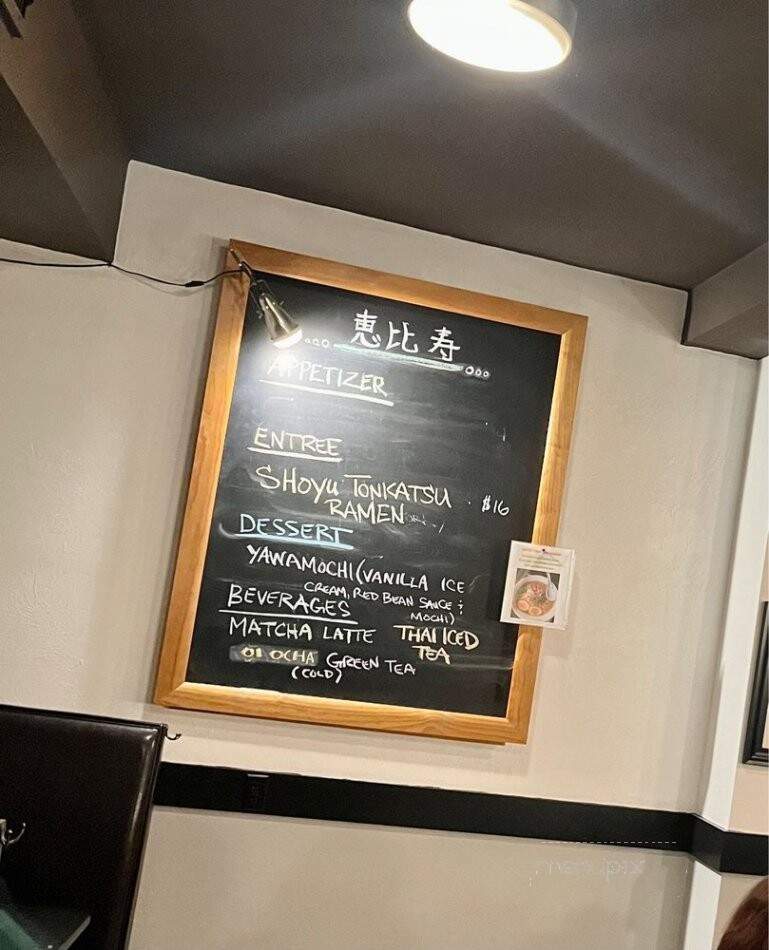 恵比寿
APPETIZER
ENTREE
SHOYU TONKATSU $16
RAMEN
DESSERT
YAWAMOCHI (VANILLA ICE
CREAM, RED BEAN SAUCE &
MOCHI)
BEVERAGES
MATCHA LATTE THAI ICED
TEA
OI OCHA GREEN TEA
(COLD)